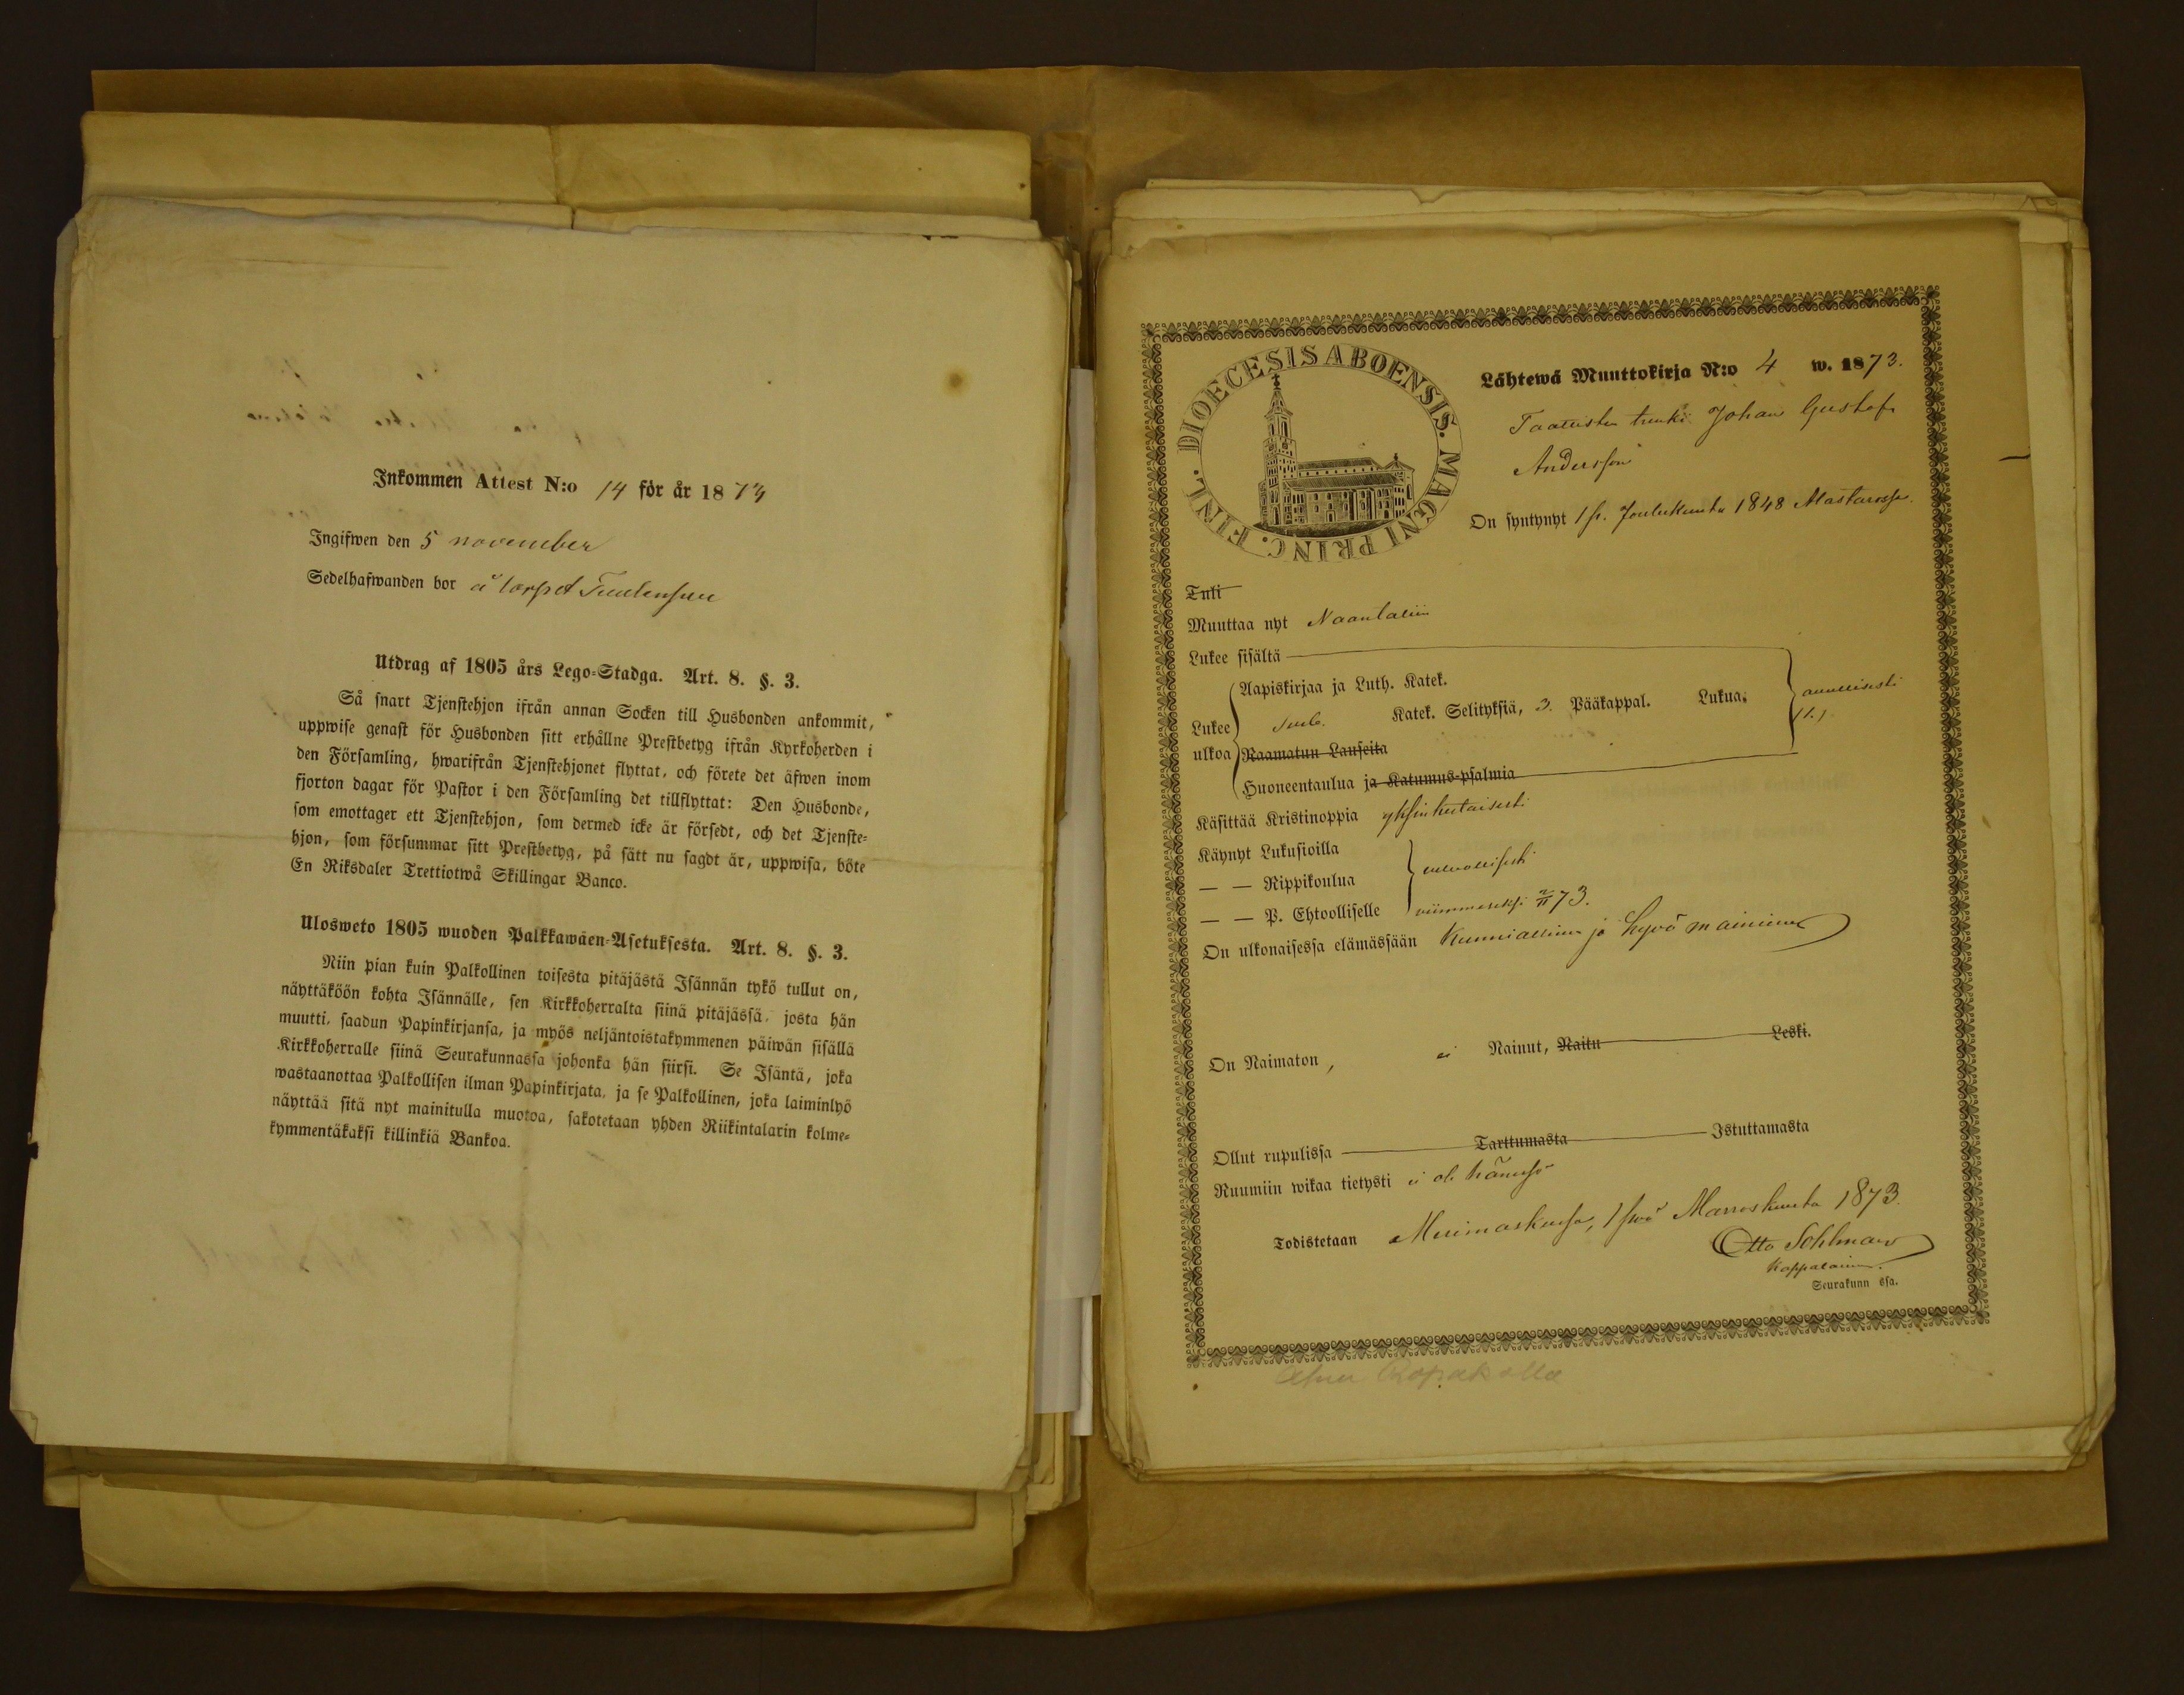 Inkommen Attest N:o 14 för år 1873
Ingifwen den 5 november
Sedelhafwanden bor å torpet
Utdrag af 1805 års Lego-Stadga. Art. 8. §. 3.
Så snart Tjenstehjon ifrån annan Socken till Husbonden ankommit,
uppwise genast för Husbonden sitt erhållne Prestbetyg ifrån Kyrkoherden i
den Församling, hwarifrån Tjenstehjonet flyttat, och förete det äfwen inom
fjorton dagar för Pastor i den Församling det tillflyttat: Den Husbonde,
som emottager ett Tjenstehjon, som dermed icke är försedt, och det Tjenste-
hjon, som försummar sitt Prestbetyg, på sätt nu sagdt är, uppwisa, böte
En Riksdaler Trettiotwå Skillingar Banco.
Ulosweto 1805 wuoden Palkkawäen-Asetuksesta. Art. 8. §. 3.
Niin pian kuin Palkollinen toisesta pitäjästä Isännän tykö tullut on,
näyttäköön kohta Isännälle, sen Kirkkoherralta siinä pitäjässä, josta hän
muutti, saadun Papinkirjansa, ja myös neljäntoistakymmenen päiwän sisällä
Kirkkoherralle siinä Seurakunnassa johonka hän siirsi. Se Isäntä, joka
wastaanottaa Palkollisen ilman Papinkirjata, ja se Palkollinen, joka laiminlyö
näyttää sitä nyt mainitulla muotoa, sakotetaan yhden Riikintalarin kolme-
kymmentäkaksi killinkiä Bankoa.
DIOECESIS ABOENSIS. MAGNI PRINC. FINL.
Lähtewä Muuttokirja N:o 4 w. 1873.
renki Johan Gustaf
Andersson
On syntynyt 1 p. Joulukuuta 1848 Alastarossa.
Tuli
Muuttaa nyt Naantaliin
Lukee sisältä
Aapiskirjaa ja Luth. Katek.
Lukee Katek. Selityksiä, 3. Pääkappal. Lukua.
ulkoa Raamatun Lauseita
Huoneentaulua ja Katumus-psalmia
Käsittää Kristinoppia yksinkertaisesti
Käynyt Lukusioilla
— — Rippikoulua
— — P. Ehtoolliselle viimmeseksi 2/11 73.
On ulkonaisessa elämässään Kunniallinen ja hyvä maininen
On Naimaton, ei Nainut, Naitu Leski.
Ollut rupulissa Tarttumasta Istuttamasta
Ruumiin wikaa tietysti ei ole hänessä
Todistetaan Merimaskussa, 1 pvä Marraskuuta 1873.
Otto Sohlman
Kappalainen.
Seurakunn ssa.